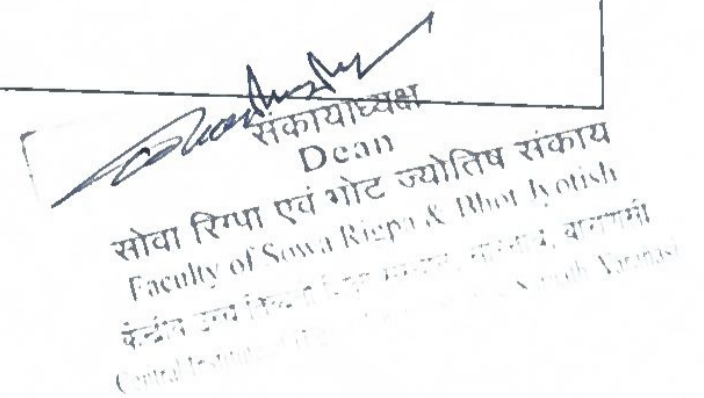 संकायाध्यक्ष
Dean
सोवा रिग्पा एवं भोट ज्योतिष संकाय
Faculty of Sowa Rigpa & Bhot Jyotish
केन्द्रीय उच्च सारनाथ, वाराणसी
Central Institute of Sarnath Varanasi